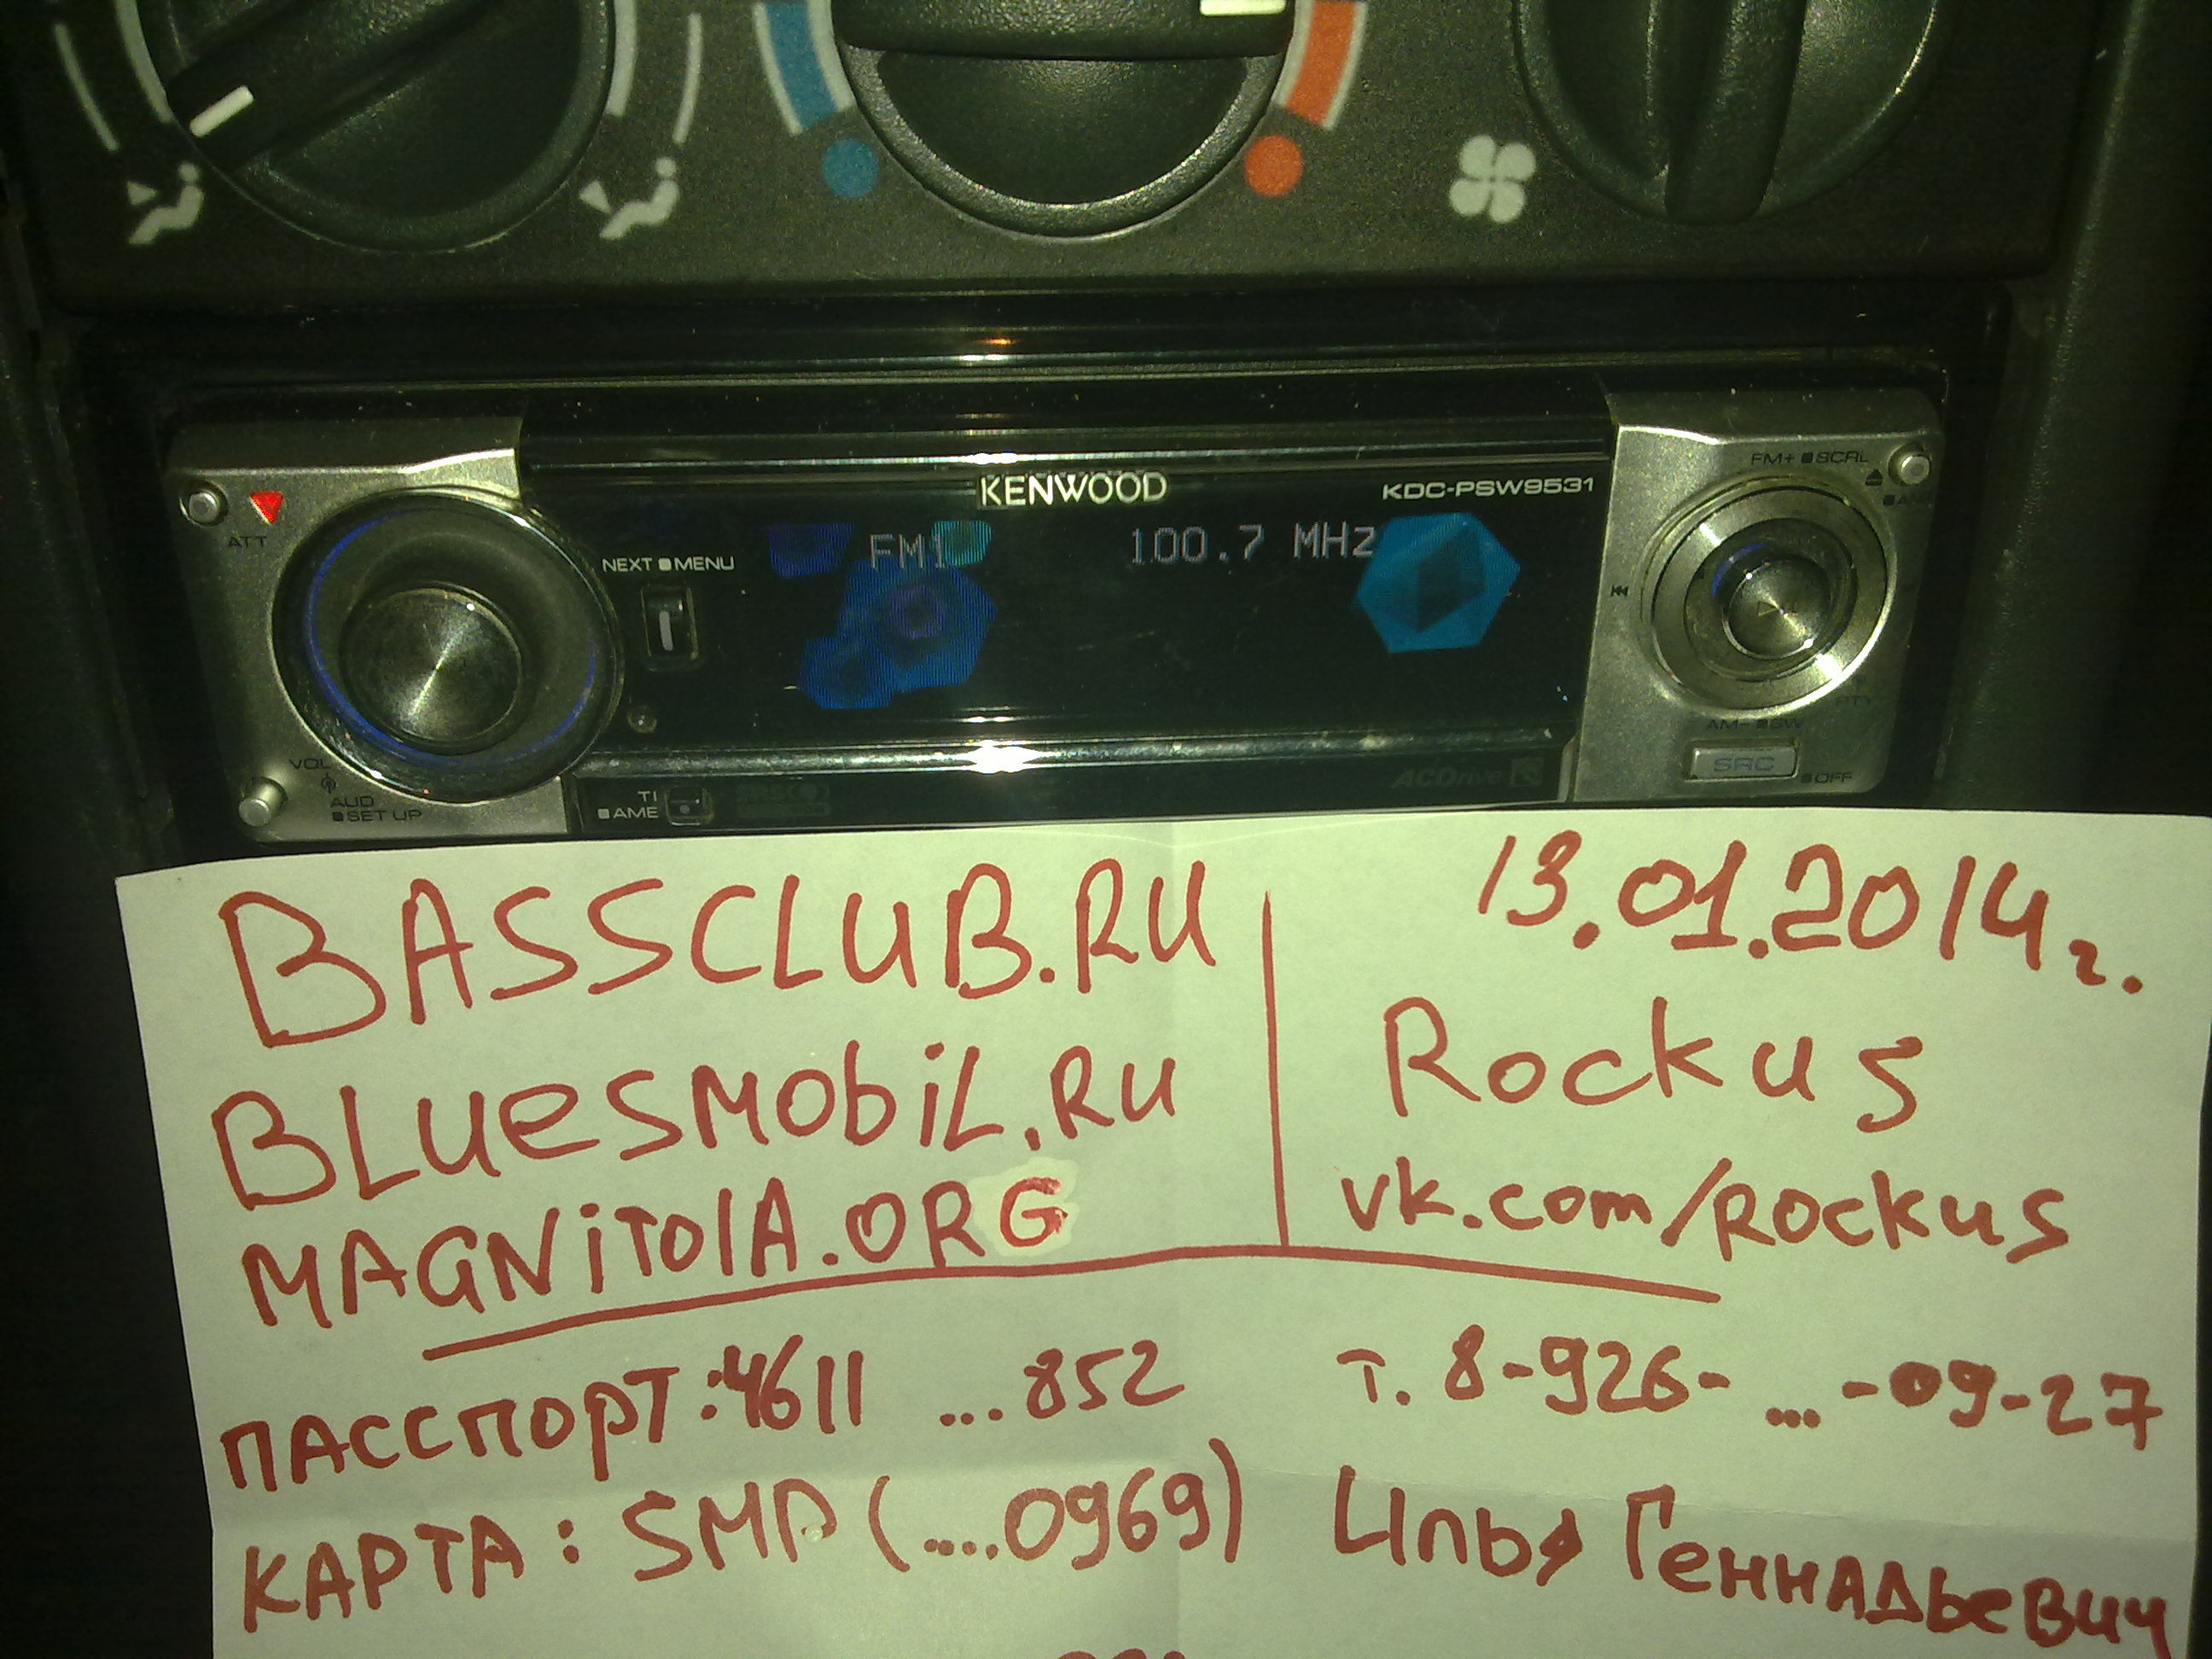 KENWOOD
KDC-PSW9531
FM+ ■SCRL
ATT
NEXT ■MENU
FM1 100.7 MHz
VOL
AUD
■SET UP
TI
■AME
ACDrive
AM- ■SW
PTY
SRC
■OFF
BASSCLUB.RU
BLUeSMObiL.RU
MAGNiTOlA.ORG
13.01.2014г.
Rockus
vk.com/Rockus
ПАССПОРТ:4611 ...852
т. 8-926-...-09-27
КАРТА: SMP (....0969)
Илья Геннадьевич